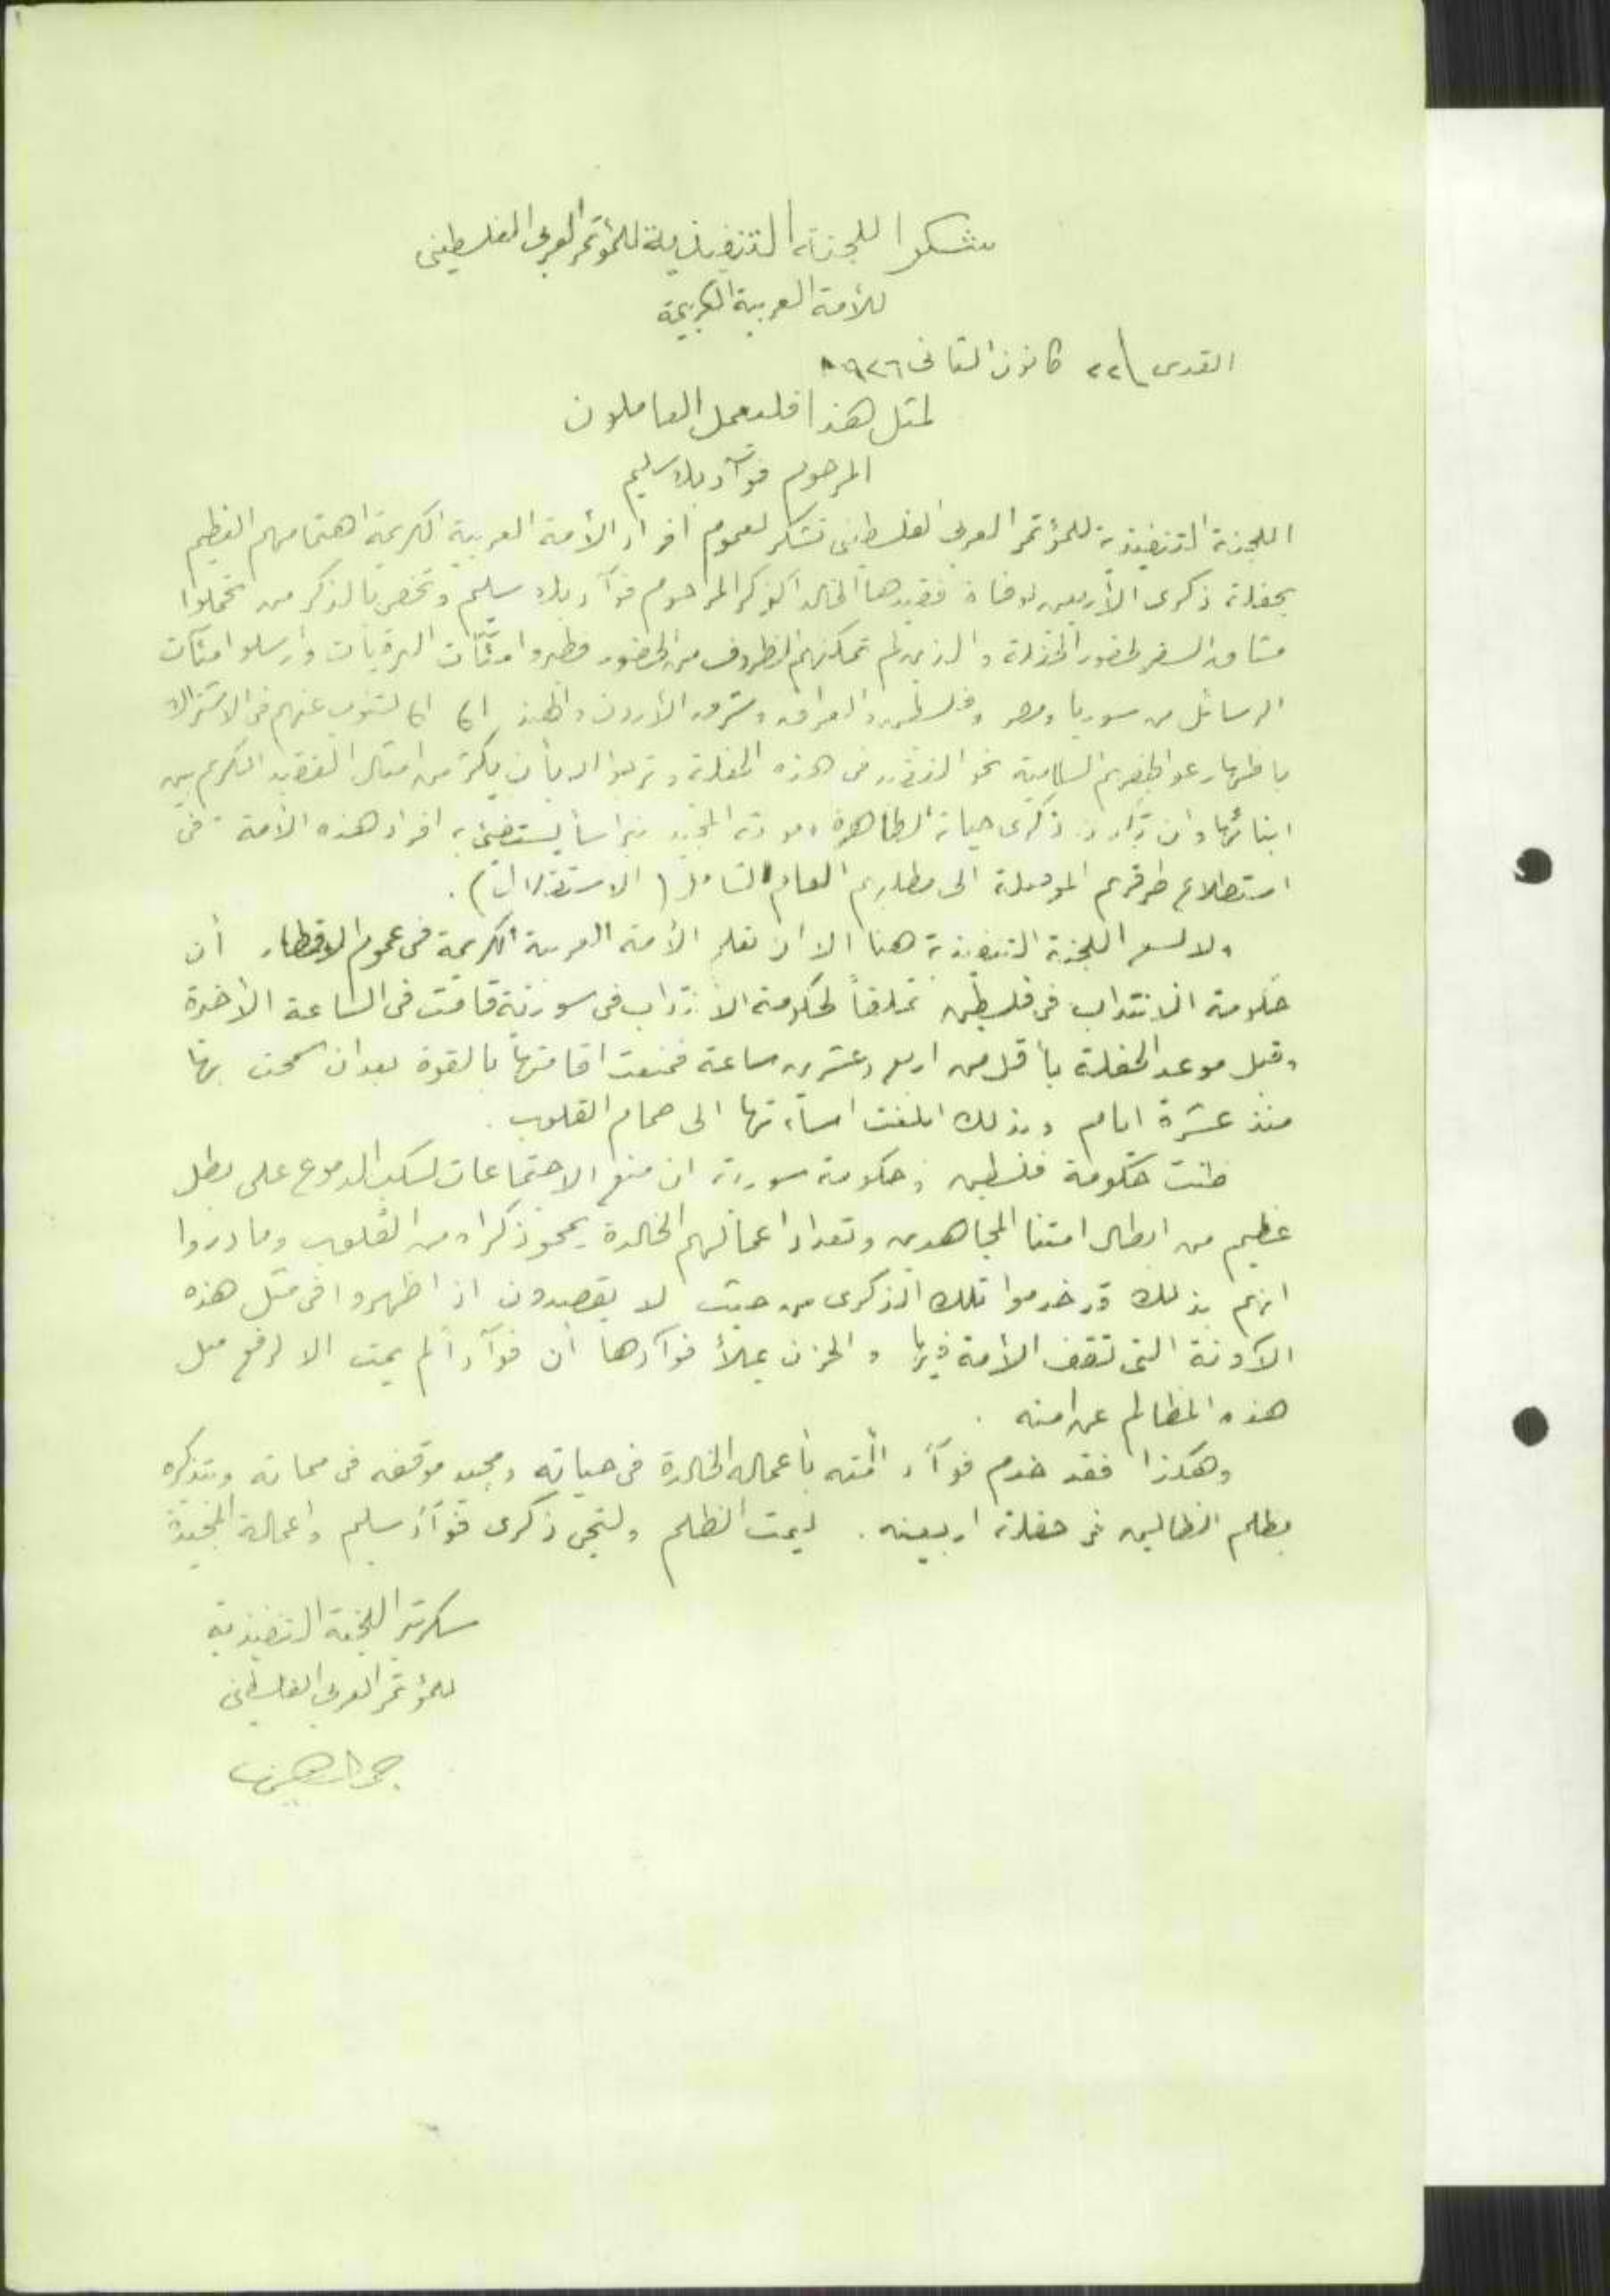 شكر اللجنة التنفيذية للمؤتمر العربي الفلسطيني
للأمة العربية الكريمة
القدس ٢٢ كانون الثاني ٩٢٦
لمثل هذا فليعمل العاملون
المرحوم فوآد بك سليم
اللجنة التنفيذية للمؤتمر العربي الفلسطيني تشكر لعموم افراد الأمة العربية الكريمة اهتمامهم العظيم
بحفلة ذكرى الأربعين لوفاة فقيدها الخالد الذكر المرحوم فوآد بك سليم وتخص بالذكر من تحملوا
مشاق السفر لحضور الحفلة والذين لم تمكنهم الظروف من الحضور فطيروا مئآت البرقيات وأرسلوا مئآت
الرسائل من سوريا ومصر وفلسطين والعراق وشرق الأردن والهند لتنوب عنهم في الاشتراك
باظهار عواطفهم السامية نحو الفقيد في هذه الحفلة وترجو الله بأن يكثر من امثال الفقيد الكريم بين
ابنائها وان تكون ذكرى حياته الطاهرة وموته المجيد نبراساً يستضيء به افراد هذه الأمة في
استطلاع طرقهم الموصلة الى مطلبهم العام الشامل (الاستقلال).
ولا يسع اللجنة التنفيذية هنا الا ان تعلم الأمة العربية الكريمة في عموم الاقطار أن
حكومة الانتداب في فلسطين تملقاً لحكومة الانتداب في سورية قامت في الساعة الأخيرة
وقبل موعد الحفلة بأقل من اربع وعشرين ساعة فمنعت اقامتها بالقوة بعد ان سمحت بها
منذ عشرة ايام وبذلك ابلغت اساءتها الى صمام القلوب.
ظنت حكومة فلسطين وحكومة سورية ان منع الاجتماعات لسكب الدموع على بطل
عظيم من ابطال امتنا المجاهدين وتعداد اعمالهم الخالدة يمحو ذكراه من القلوب وما دروا
انهم بذلك قد خدموا تلك الذكرى من حيث لا يقصدون اذ اظهروا في مثل هذه
الآونة التي تقف الأمة فيها والحزن يملأ فوآدها أن فوآداً لم يمت الا لرفع مثل
هذه المظالم عن امته.
وهكذا فقد خدم فوآد أمته بأعماله الخالدة في حياته ومجيد موقفه في مماته وبتذكره
بظلم الظالمين في حفلة اربعينه. ليمت الظلم ولتحي ذكرى فوآد سليم واعماله المجيدة
سكرتير اللجنة التنفيذية
للمؤتمر العربي الفلسطيني
جمال الحسيني